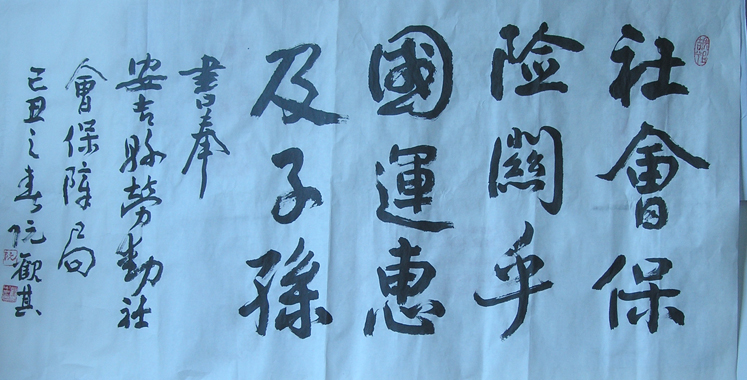 社會保
险關乎
國運惠
及子孫
書奉
安吉縣勞動社
會保障局
己丑之春阮觀其